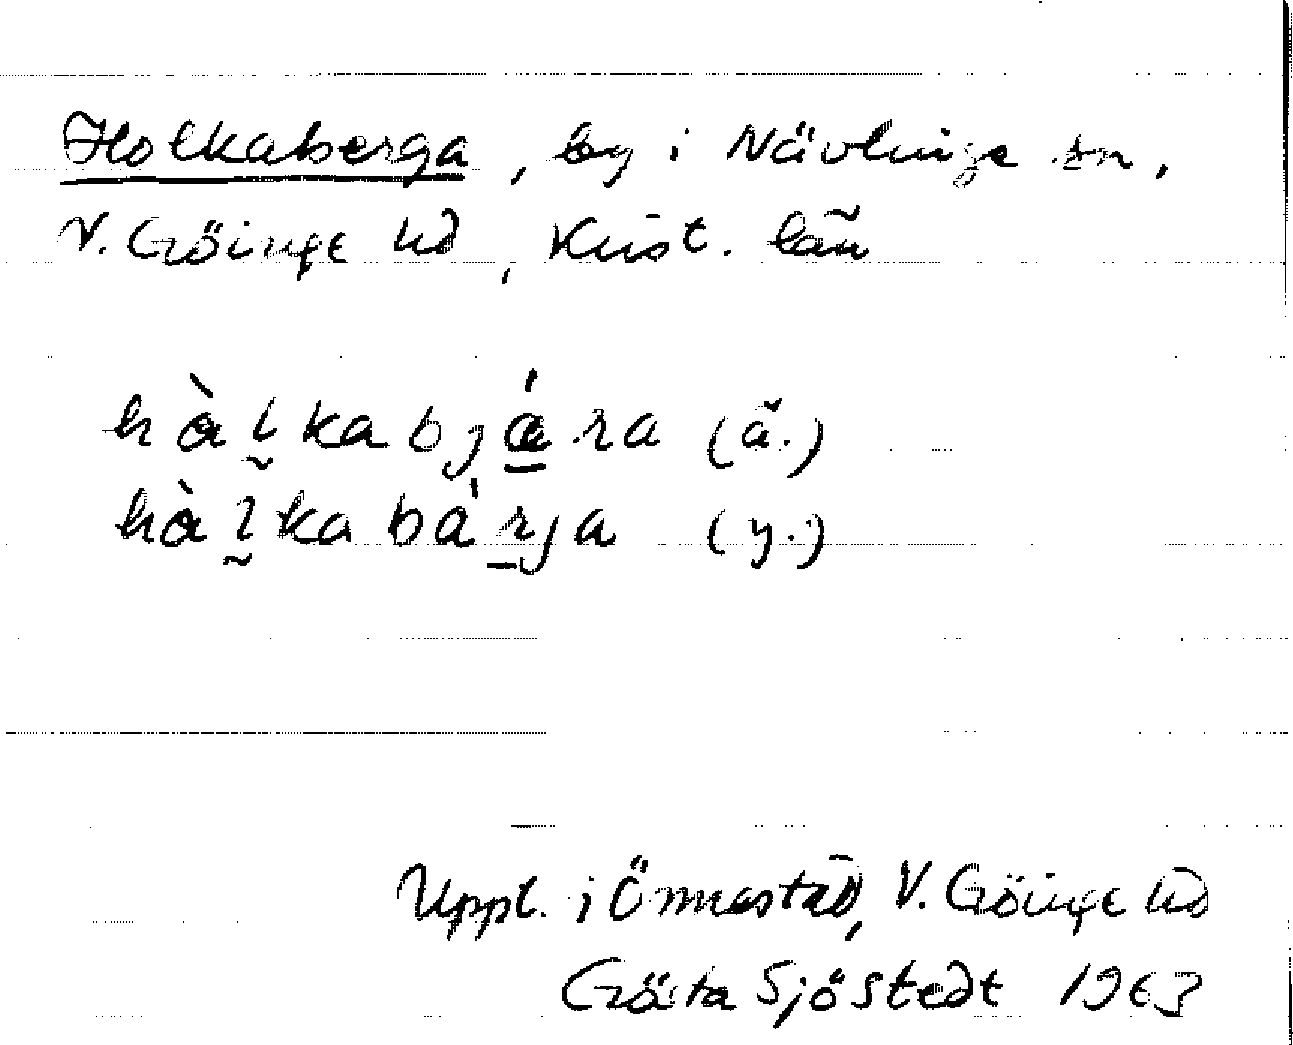 Holkaberga, by i Nävlinge sn,
V. Göinge hd, Krist. län
hàl̰kabjá̱ra (ä.)
hàl̰kabáṟja (y.)
Uppt. i Önnestad, V. Göinge hd
Gösta Sjöstedt 1963